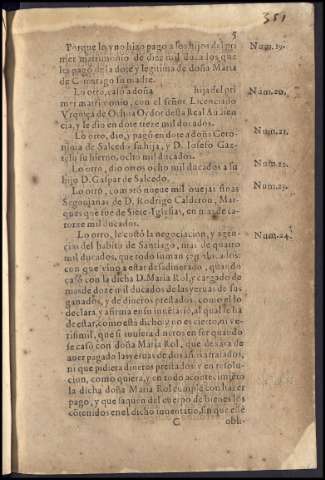 351
5
Porque lo vno hizo pago a sos hijos del pri
mer matrimonio de diez mil ducados que
les pagó de la dote y legitima de doña Maria
de C   ntago su madre.
Num.19.
Lo otro, casó a doña            hija del pri
mer matrimonio, con el señor Licenciado
Vrquiça de Ochoa Oydor desta Real Audien
cia, y le dio en dote treze mil ducados.
Num.20.
Lo otro, dio, y pagó en dote a doña Cero-
nima de Salcedo su hija, y D. Iosefo Gaz-
su hierno, ocho mil ducados.
Num.21.
Lo otro, dio otros ocho mil ducados a su
hijo D. Gaspar de Salcedo.
Num.22.
Lo otro, compró nueue mil ouejas finas
Segouianas de D. Rodrigo Calderon, Mar-
ques que fue de Siete-Iglesias, en mas de ca-
torze mil ducados.
Num.23.
Lo otro, le costó la negociacion, y agen-
cias del habito de Santiago, mas de quatro
mil ducados, que todo suman
con que vino a estar desadinerado, quando
casó con la dicha D. Maria Rol, y cargado de
mas de doze mil ducados de las yeruas de sus
ganados, y de dineros prestados, como el lo
declara y afirma en su inuētario, al qual se ha
de estar, como está dicho: y no es cierto, ni ve-
risimil, que si tuuiera dineros en ser quando
se casó con doña Maria Rol, que dexara de
auer pagado las yeruas de dos años atrasados,
ni que pidiera dineros prestados: y en resolu-
cion, como quiera, y en todo acontecimiēto
la dicha doña Maria Rol cumpla con hacer
pago, y que saquen del cuerpo de bienes los
cōtenidos en el dicho inuentario, sin que esté
Num.24.
C
obli-